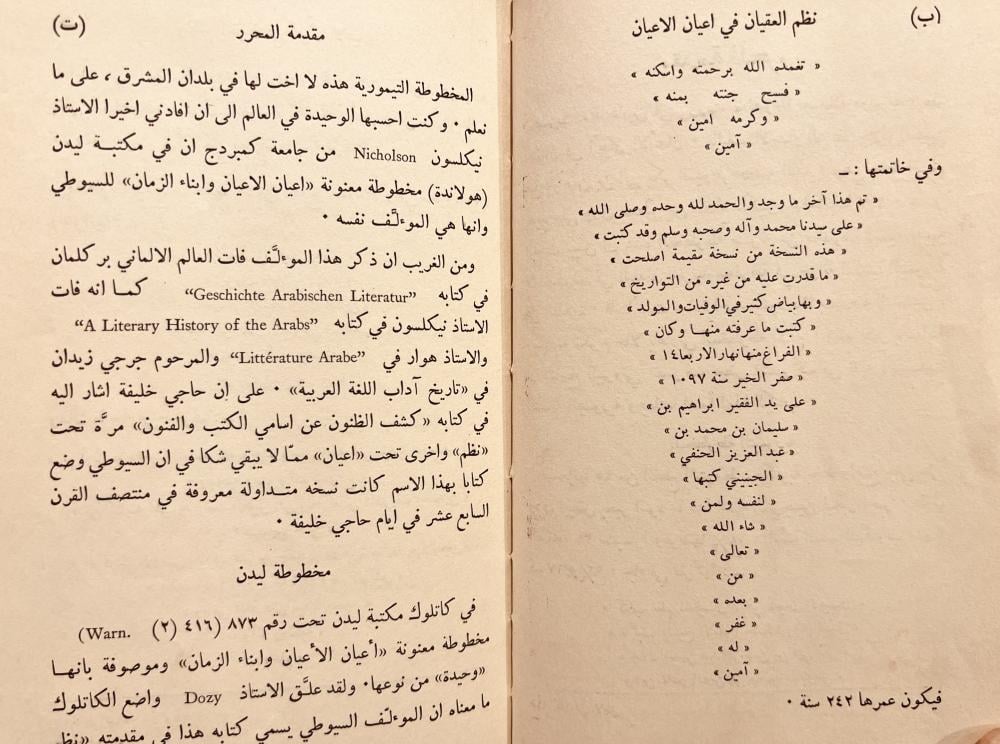 (ب)
نظم العقيان في اعيان الاعيان
« تغمده الله برحمته واسكنه »
« فسيح جنته بمنه »
« وكرمه امين »
« آمين »
وفي خاتمتها : ـ
« تم هذا آخر ما وجد والحمد لله وحده وصلى الله »
« على سيدنا محمد وآله وصحبه وسلم وقد كتبت »
« هذه النسخة من نسخة سقيمة اصلحت »
« ما قدرت عليه من غيره من التواريخ »
« وبها بياض كثير في الوفيات والمولد »
« كتبت ما عرفته منها وكان »
« الفراغ منها نهار الاربعا ١٤ »
« صفر الخير سنة ١٠٩٧ »
« على يد الفقير ابراهيم بن »
« سليمان بن محمد بن »
« عبد العزيز الحنفي »
« الجينيني كتبها »
« لنفسه ولمن »
« شاء الله »
« تعالى »
« من »
« بعده »
« غفر »
« له »
« آمين »
فيكون عمرها ٢٤٢ سنة ٠
مقدمة المحرر
(ت)
المخطوطة التيمورية هذه لا اخت لها في بلدان المشرق ، على ما
نعلم ٠ وكنت احسبها الوحيدة في العالم الى ان افادني اخيرا الاستاذ
نيكلسون Nicholson من جامعة كمبردج ان في مكتبـة ليدن
(هولاندة) مخطوطة معنونة «اعيان الاعيان وابناء الزمان» للسيوطي
وانها هي الموءلَّف نفسه ٠
ومن الغريب ان ذكر هذا الموءلَّف فات العالم الالماني بركلمان
في كتابه “Geschichte Arabischen Literatur” كمـا انه فات
الاستاذ نيكلسون في كتابه “A Literary History of the Arabs”
والاستاذ هوار في “Littérature Arabe” والمرحوم جرجي زيدان
في «تاريخ آداب اللغة العربية» ٠ على ان حاجي خليفة اشار اليه
في كتابه «كشف الظنون عن اسامي الكتب والفنون» مرَّة تحت
«نظم» واخرى تحت «اعيان» ممّا لا يبقي شكا في ان السيوطي وضع
كتابا بهذا الاسم كانت نسخه متـداولة معروفة في منتصف القرن
السابع عشر في ايام حاجي خليفة ٠
مخطوطة ليدن
في كاتلوك مكتبة ليدن تحت رقم ٨٧٣ (٤١٦ (٢) Warn.)
مخطوطة معنونة «أعيان الأعيان وابناء الزمان» وموصوفة بانهـا
«وحيدة» من نوعها٠ ولقد علـَّق الاستاذ Dozy واضع الكاتلوك
ما معناه ان الموءلّف السيوطي يسمي كتابه هذا في مقدمته «نظم